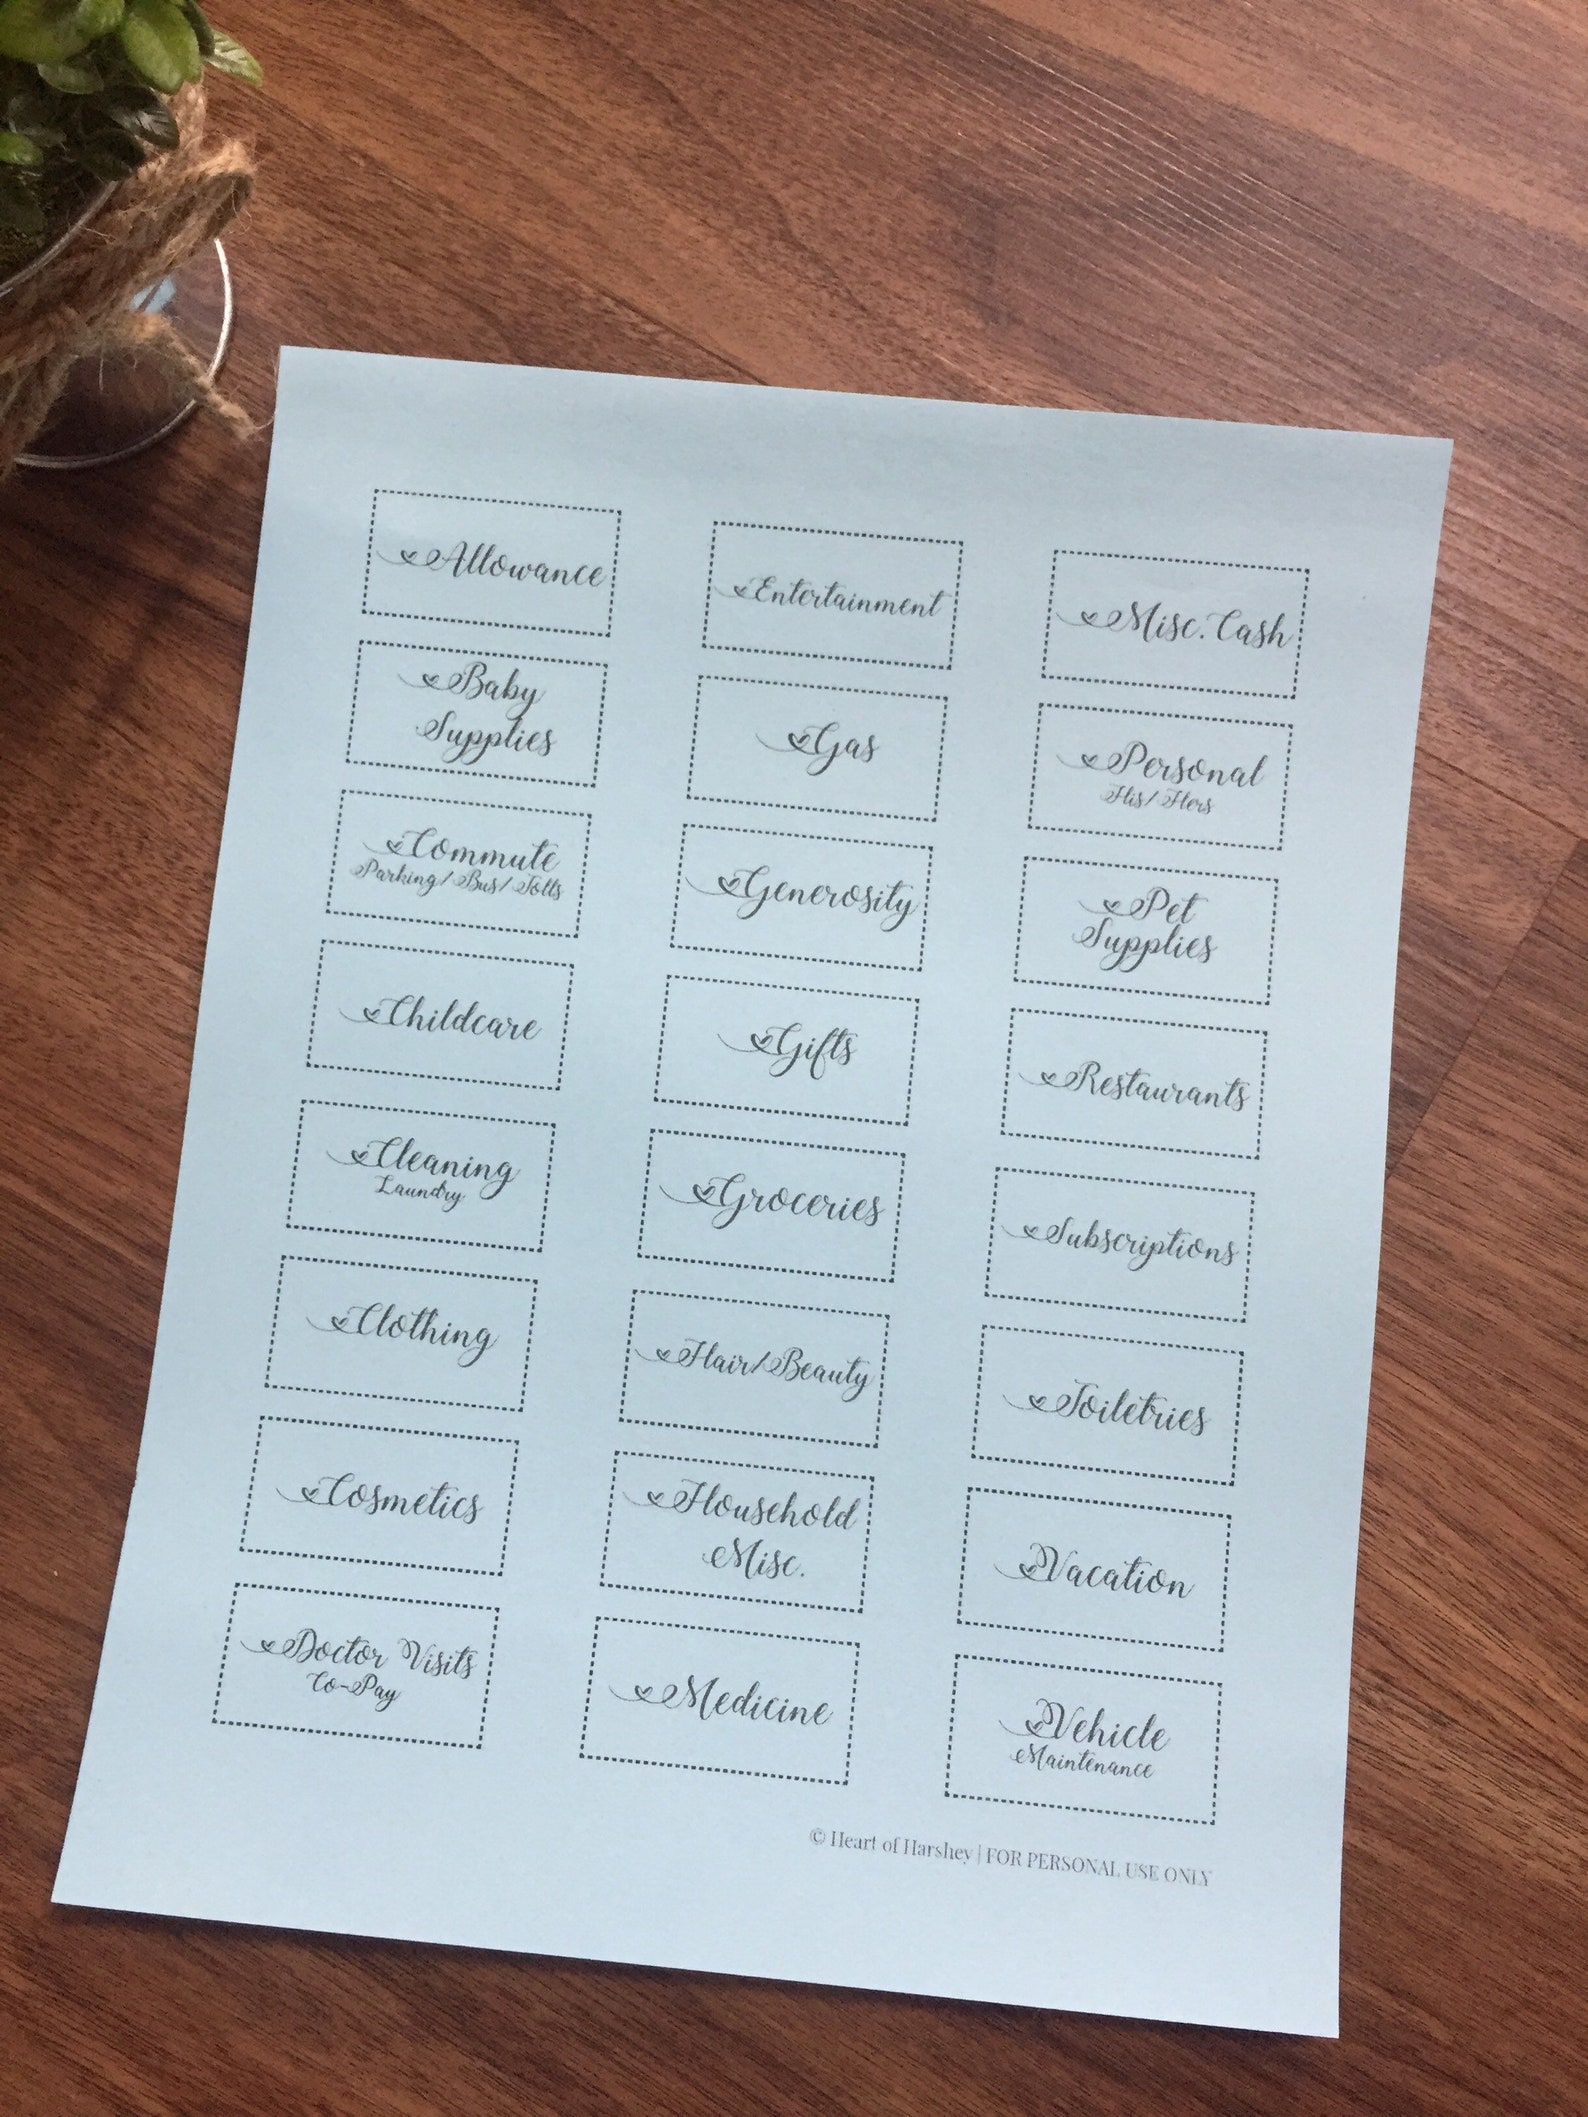 Allowance
Baby
Supplies
Commute
Parking/Bus/Tolls
Childcare
Cleaning
Laundry
Clothing
Cosmetics
Doctor Visits
Co-Pay
Entertainment
Gas
Generosity
Gifts
Groceries
Hair/Beauty
Household
Misc.
Medicine
Misc. Cash
Personal
His/Hers
Pet
Supplies
Restaurants
Subscriptions
Toiletries
Vacation
Vehicle
Maintenance
© Heart of Harshey | FOR PERSONAL USE ONLY